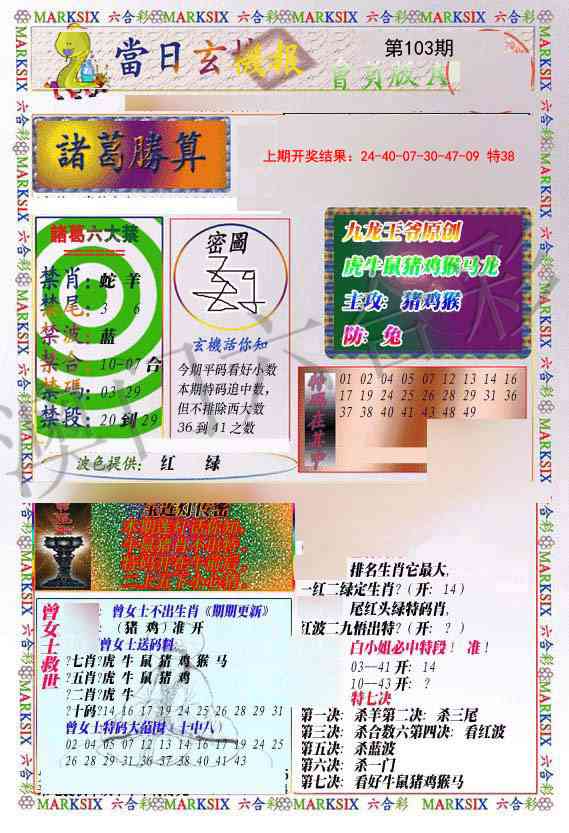 MARKSIX 六合彩 MARKSIX 六合彩 MARKSIX 六合彩 MARKSIX
當日玄机
機报
第103期
會員版A
諸葛勝算
上期开奖结果：24-40-07-30-47-09 特38
諸葛六大禁
禁肖：蛇 羊
禁尾：3 6
禁波：蓝
禁合：10-07 合
禁碼：03 29
禁段：20 到 29
密圖
玄機活你知
今期平码看好小数
本期特码追中数，
但不排除西大数
36 到 41 之数
波色提供： 红 绿
九龙王爷原创
虎牛鼠猪鸡猴马龙
主攻：猪鸡猴
防：兔
特码在其中
01 02 04 05 07 12 13 14 16
17 19 24 25 26 28 29 31 36
37 38 40 41 43 48 49
宝莲灯传密
曾女士救世
：曾女士不出生肖《期期更新》
：（猪 鸡）准 开
曾女士送码料
?七肖?虎 牛 鼠 猪 鸡 猴 马
?五肖?虎 牛 鼠 猪 鸡
?二肖?虎 牛
?十码?14 16 17 19 24 25 26 28 29 31
曾女士特码大范围〈十中八〉
02 04 05 07 12 13 14 16 17 19 24 25
26 28 29 31 36 37 38 40 41 43
排名生肖它最大，
一红二绿定生肖?（开：14）
尾红头绿特码肖，
红波二九悟出特?（开：？）
白小姐必中特段！ 准！
03—41 开：14
10—43 开：？
特七决
第一决：杀羊第二决：杀三尾
第三决：杀合数六第四决：看红波
第五决：杀蓝波
第六决：杀一门
第七决：看好牛鼠猪鸡猴马
MARKSIX 六合彩 MARKSIX 六合彩 MARKSIX 六合彩 MARKSIX 六合彩 MARKSIX